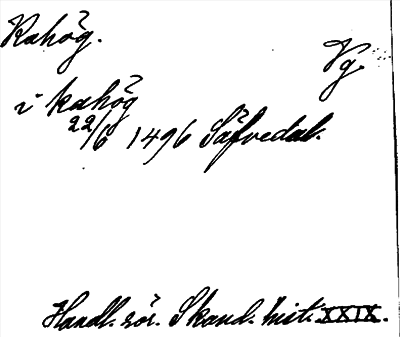 Kahög.
Vg.
i kahög
22/6 1496 Säfvedal.
Handl. rör. Skand. hist. XXIX.